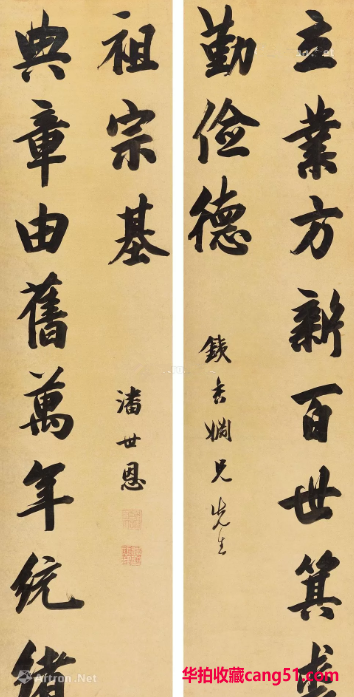 立業方新百世箕裘
勤儉德
銕 婣兄先生
典章由舊萬年統緒
祖宗基
潘世恩
Artron.Net
华拍收藏cang51.com